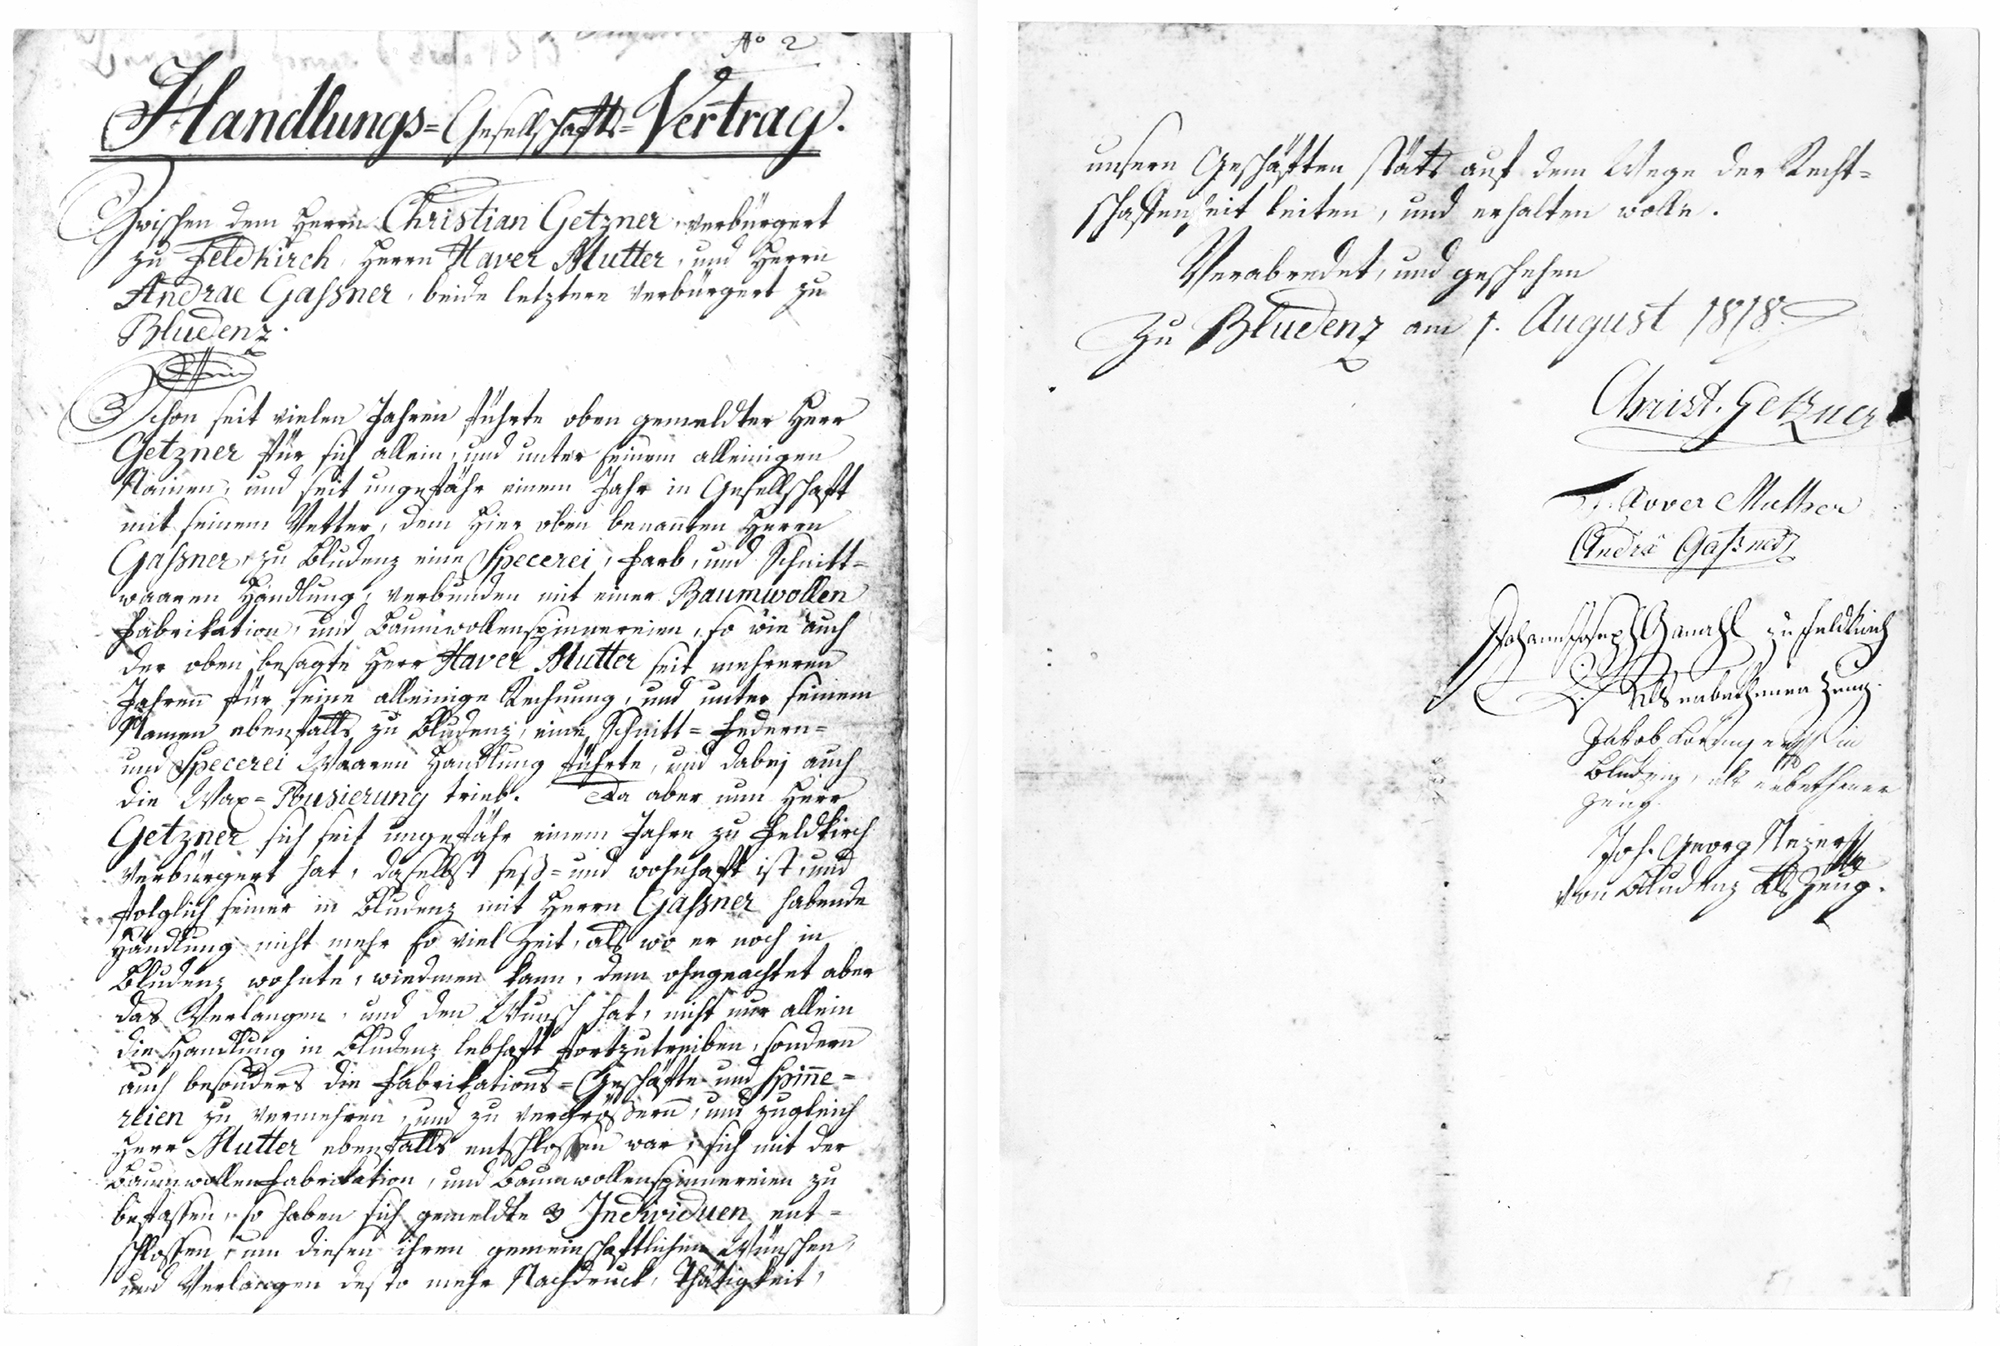 No 2
Handlungs=Gesellschafts=Vertrag.
Zwischen dem Herrn Christian Getzner, verbürgert
zu Feldkirch, Herrn Xaver Mutter, und Herrn
Andrae Gaßner, beide letztere verbürgert zu
Bludenz.
Schon seit vielen Jahren führte oben gemeldter Herr
Getzner für sich allein, und unter seinem alleinigen
Namen, und seit ungefähr einem Jahr in Gesellschaft
mit seinem Vetter, dem hier oben benannten Herrn
Gaßner, zu Bludenz eine Specerei, Farb, und Schnitt=
waaren Handlung, verbunden mit einer Baumwollen
Fabrikation, und Baumwollenspinnereien, so wie auch
der oben besagte Herr Xaver Mutter seit mehreren
Jahren für seine alleinige Rechnung, und unter seinem
Namen ebenfalls zu Bludenz, eine Schnitt= Federn=
und Specerei Waaren Handlung führte, und dabej auch
die Wax=Pousierung trieb. Da aber nun Herr
Getzner sich seit ungefähr einem Jahre zu Feldkirch
verbürgert hat, daselbst seß= und wohnhaft ist, und
folglich seiner in Bludenz mit Herrn Gaßner habende
Handlung nicht mehr so viel Zeit, als wo er noch in
Bludenz wohnte, wiedmen kann, dem ohngeachtet aber
das Verlangen, und den Wunsch hat, nicht nur allein
die Handlung in Bludenz lebhaft fortzutreiben, sondern
auch besonders die Fabrikations=Geschäfte und Spinne=
reien zu vermehren, und zu vergrößern, und zugleich
Herr Mutter ebenfalls entschlossen war, sich mit der
Baumwollenfabrikation, und Baumwollenspinnereien zu
befassen, so haben sich gemeldte 3 Individuen ent=
schlossen, um diesen ihren gemeinschaftlichen Wünschen,
und Verlangen desto mehr Nachdruck, Thätigkeit,
unsern Geschäften stäts auf dem Wege der Recht=
schaffenheit leiten, und erhalten wolle.
Verabredet, und geschehen
Zu Bludenz am 1. August 1818.
Christ. Getzner
Xaver Muther
Andrä Gaßner
Johann Joseph Ganahl zu Feldkirch
Als erbethener Zeug.
Jakob in
Bludenz, als erbethener
Zeug.
Joh. Georg Nezer
von Bludenz als Zeug.